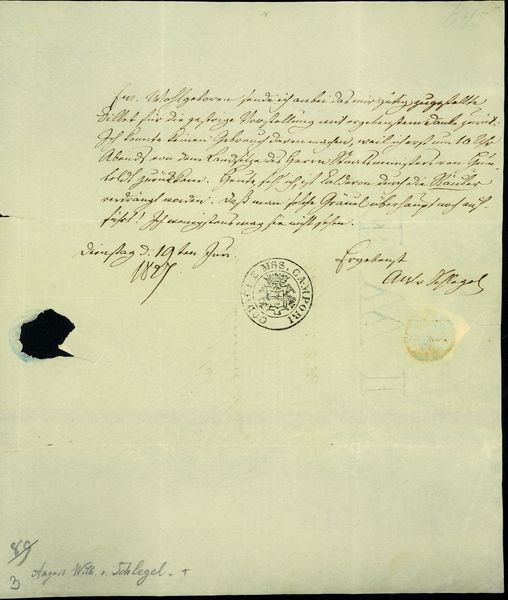 Ew. Wohlgeboren sende ich anbei das mir gütig zugestellte
Billet für die gestrige Vorstellung mit ergebenstem Danke zurück.
Ich konnte keinen Gebrauch davon machen, weil ich erst um 10 Uhr
Abends von dem Landsitze des Herrn Staatsministers von Hum-
boldt zurückkam. Heute, seh' ich, ist Calderon durch die Räuber
verdrängt worden. Daß man solche Gräuel überhaupt noch auf-
führt! Ich wenigstens mag sie nicht sehen.
Dienstag d. 19ten Jun.
1827
Ergebenst
AW v Schlegel
CODICI E MSS. CAMPORI
89
3 August Wilh. v. Schlegel. +